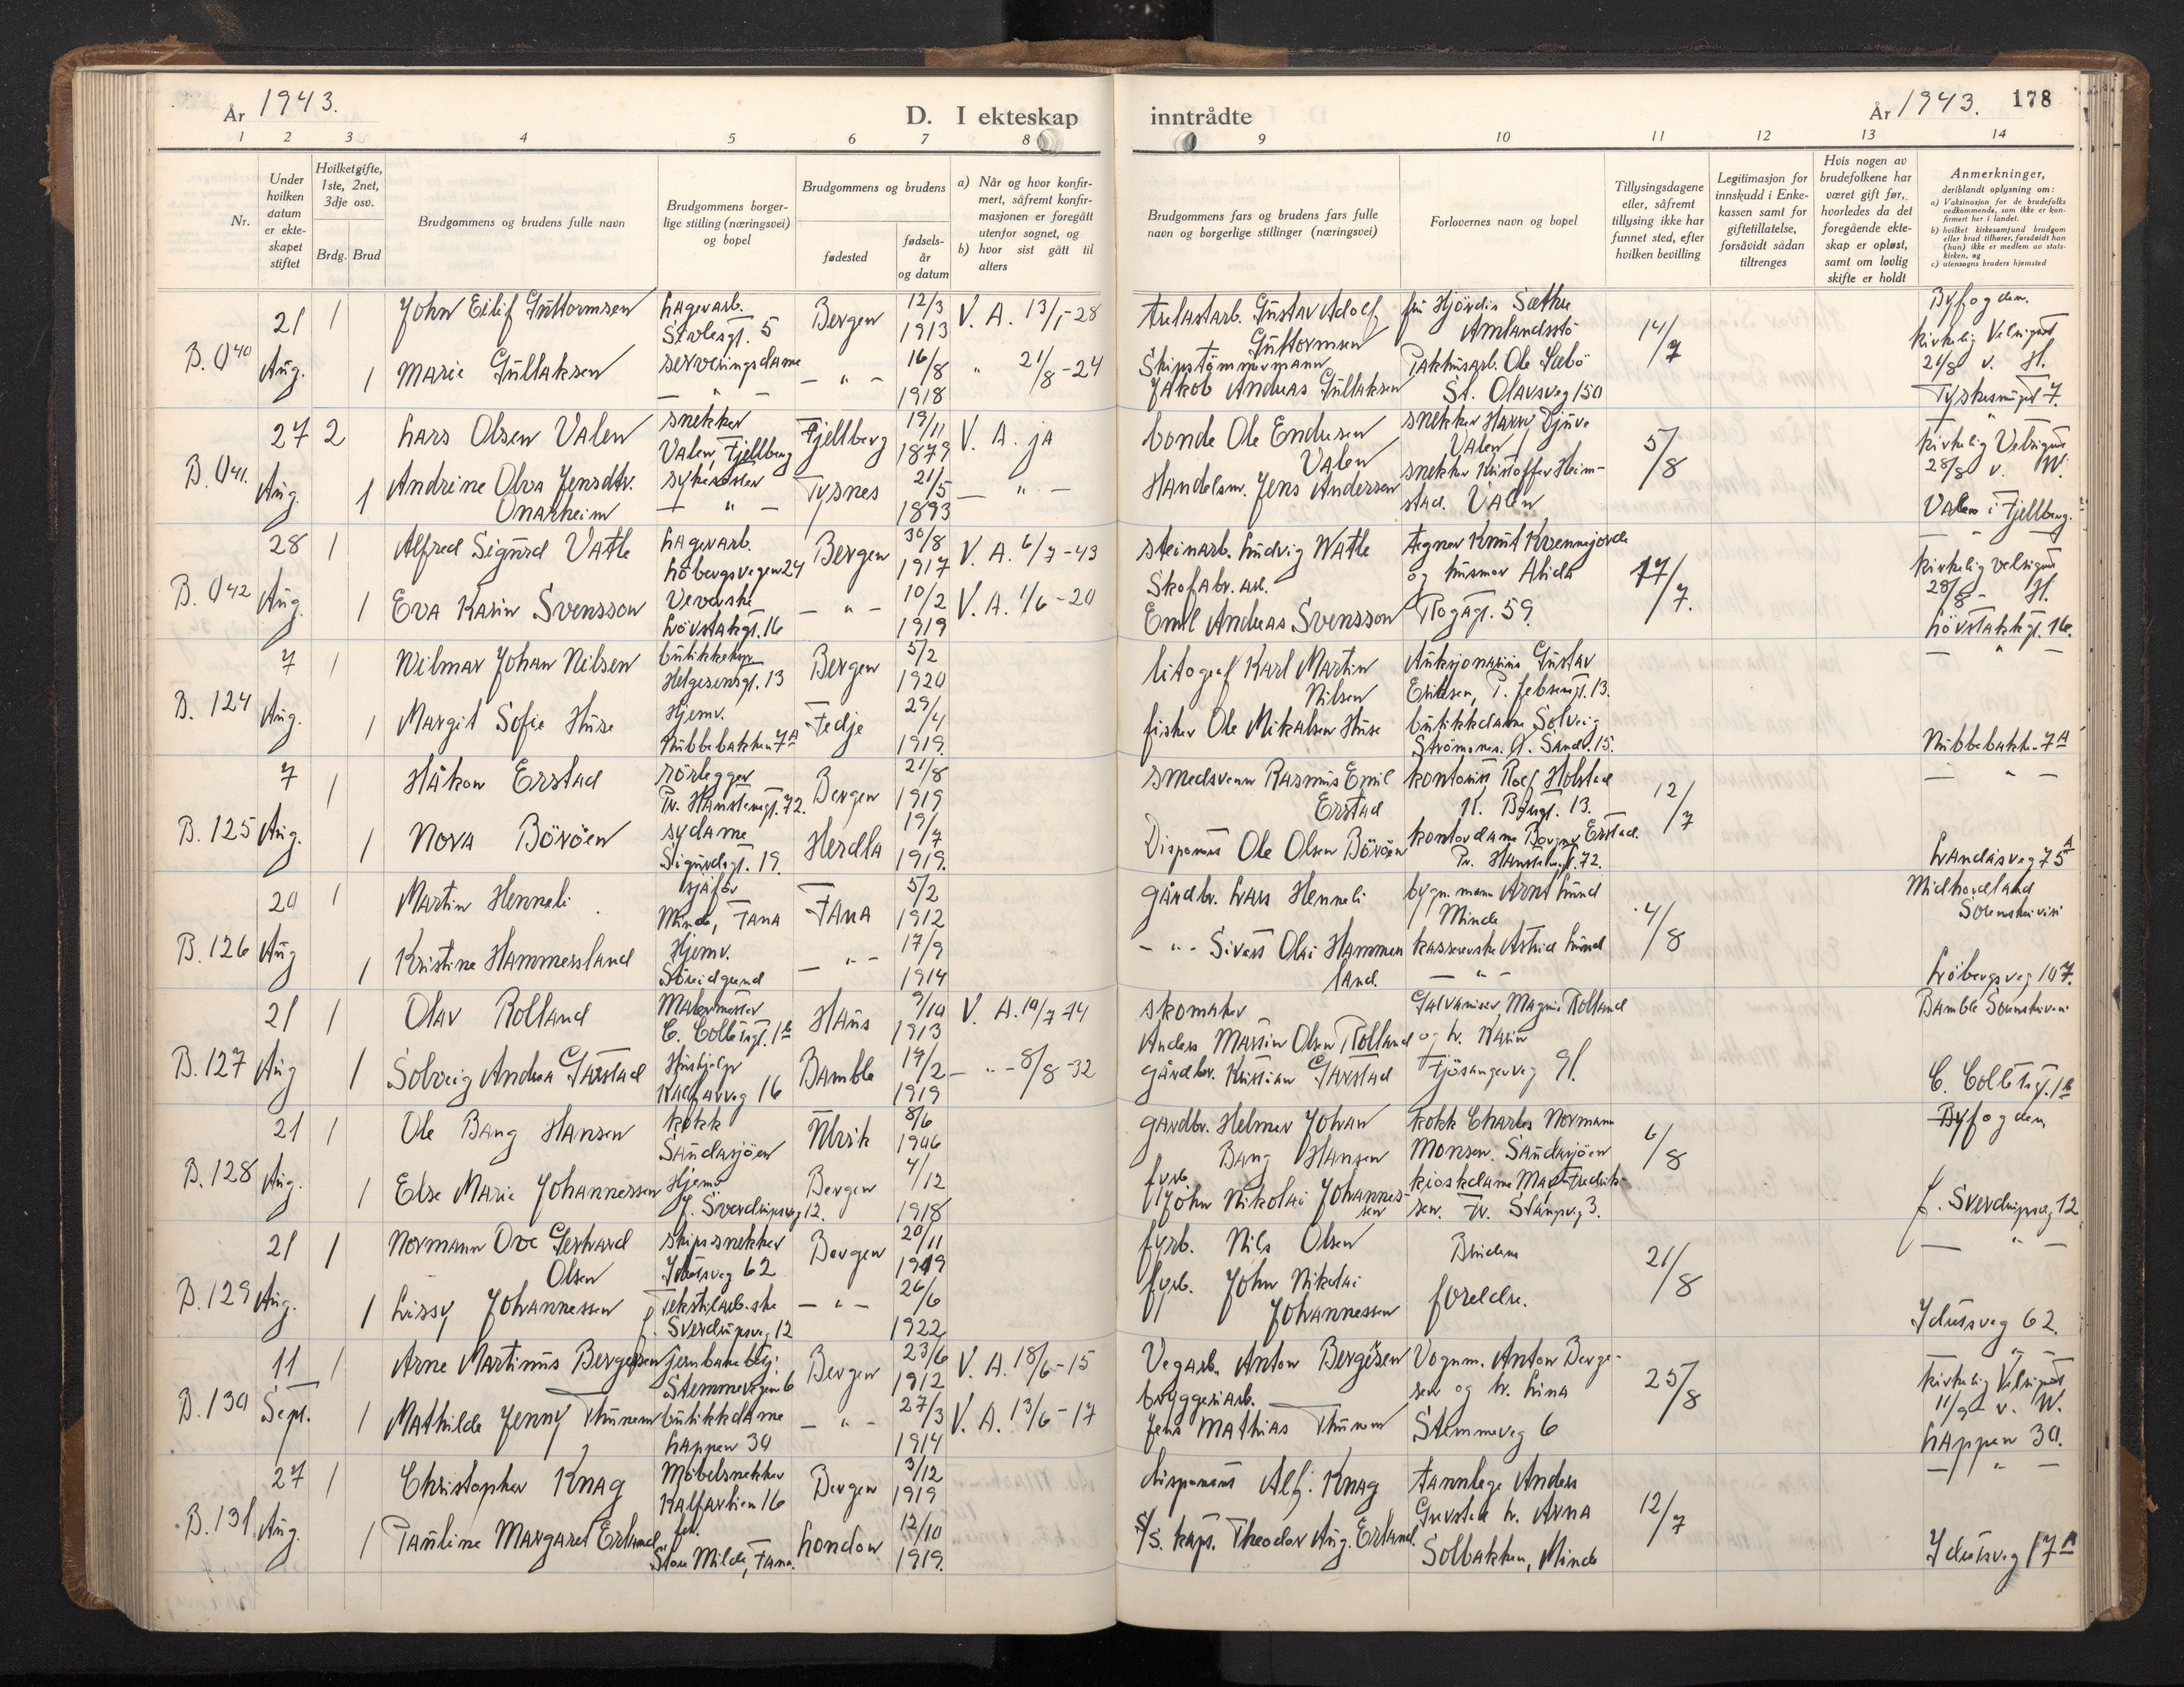 År 1943.
D. I ekteskap
inntrådte
År 1943. 178
1 2 3 4 5 6 7 8
9 10 11 12 13 14
Nr.
Under hvilken datum er ekteskapet stiftet
Hvilket gifte, 1ste, 2net, 3dje osv.
Brdg. Brud
Brudgommens og brudens fulle navn
Brudgommens borgerlige stilling (næringsvei) og bopel
Brudgommens og brudens
fødested
fødselsår og datum
a) Når og hvor konfirmert, såfremt konfirmasjonen er foregått utenfor sognet, og
b) hvor sist gått til alters
Brudgommens fars og brudens fars fulle navn og borgerlige stillinger (næringsvei)
Forlovernes navn og bopel
Tillysingsdagene eller, såfremt tillysing ikke har funnet sted, efter hvilken bevilling
Legitimasjon for innskudd i Enkekassen samt for giftetillatelse, forsåvidt sådan tiltrenges
Hvis nogen av brudefolkene har været gift før, hvorledes da det foregående ekteskap er opløst, samt om lovlig skifte er holdt
Anmerkninger,
deriblandt oplysning om:
a) Vaksinasjon for de brudefolks vedkommende, som ikke er konfirmert her i landet.
b) hvilket kirkesamfund brudgom eller brud tilhører, forsåvidt han (hun) ikke er medlem av statskirken, og
c) utensogns bruders hjemsted
B. 040 21 Aug. 1 John Eilif Guttormsen lagerarb. Stølesgt. 5 Bergen 12/3 1913 V. A. 13/1-28
1 Marie Gullaksen serveringsdame — " — — " — 16/8 1918 " 21/8-24
Trelastarb. Gustav Adolf Guttormsen
Skipstømmermann Jakob Andreas Gullaksen
fru Hjørdis Sæthre
Pakhusarb. Ole Sæbö St. Olavsveg 150
14/7
Byfogden. Kirkelig Velsignet 21/8 v. H.
B. 041. 27 Aug. 2 Lars Olsen Valen snekker Valen, Fjellberg Fjellberg 19/11 1879 V. A. ja
1 Andrine Olva Jensdtr. Onarheim — " — Tysnes 21/5 1893 — " —
bonde Ole Endresen Valen
Handelsm. Jens Anderssen
snekker Harry Djuve Valen
snekker Kristoffer Heimstad. Valen
5/8
Kirkelig Velsignet 28/8 v. W.
Valen i Fjellberg.
B. 042 28 Aug. 1 Alfred Sigurd Vatle lagerarb. Löbergsvegen 24 Bergen 30/8 1917 V. A. 6/7-43
1 Eva Karin Svensson Veverske Lövstakgt. 16 — " — 10/2 1919 V. A. 1/6-20
steinarb. Ludvig Watle
Skofabr. arb. Emil Andreas Svensson
og husmor Alida
59.
17/7.
Kirkelig velsignet 28/8 - H.
Lövstakkgt. 16.
B. 124 7 Aug. 1 Wilmar Johan Nilsen Helgesensgt. 13 Bergen 5/2 1920
1 Margit Sofie Huse Hjemv. Nubbebakken 7A Fedje 29/4 1919.
litograf Karl Martin Nilsen
fisker Ole Mikalsen Huse
Auksjonarius Gustav Eriksen, P. Jebsensgt. 13.
butikkdame Solveig
Nubbebakk. 7A
B. 125 7 Aug. 1 Håkon Erstad rörlegger Pr. Hansteensgt. 72. Bergen 21/8 1919
1 Nora Böröen sydame Sigurdsgt. 19. Herdla 19/7 1919.
smedsvenn Rasmus Emil Erstad
Disponent Ole Olsen Böröen
kontorist Rolf Holstad
kontordame Borgny Erstad. Pr. Hansteensgt. 72.
12/7
Landåsveg 75A
B. 126 20 Aug 1 Martin Henneli sjåför Minde, Fana Fana 5/2 1912
1 Kristine Hammersland Hjemv. Söreidgrend — " — 17/9 1914
gårdbr. Lars Henneli
— " — Sivert Olai Hammersland.
bygn. mann Arnt Lund Minde
kassererske Astrid Lund — " —
4/8
Midhordland Sorenskriveri
Löbergsveg 107.
B. 127 21 Aug 1 Olav Rolland Malermester C. Collettsgt. 1b Haus 9/10 1913 V. A. 10/7-44
1 Solveig Andrea Garstad Hushjelp Kalfarveg 16 Bamble 19/2 1919 — " — 8/8-32
skomaker Anders Martin Olsen Rolland
gårdbr. Kristian Garstad
Galvanisør Magnus Rolland og h. Karin Fjösangerveg 91.
Bamble Sorenskriveri
C. Collettsgt. 1b
B. 128 21 Aug. 1 Ole Bang Hansen kokk Sandasjöen 8/6 1906
1 Else Marie Johannessen Hjemv. J. Sverdrupsveg 12. Bergen 4/12 1918
gardbr. Helmer Johan Bang Hansen
fyrb. John Nikolai Johannessen
kokk Charles Normann Monsen. Sandasjöen
kioskdame Mary Fredriksen.
6/8
Byfogden
J. Sverdrupsveg 12
B. 129 21 Aug. 1 Normann Ove Gerhard Olsen skipssnekker Idunsveg 62 Bergen 20/11 1919
1 Lissy Johannessen Tekstilarb.ske J. Sverdrupsveg 12 — " — 26/6 1922
fyrb. Nils Olsen
fyrb. John Nikolai Johannessen
Brudens foreldre.
21/8
— " —
Idunsveg 62.
B. 130 11 Sept. 1 Arne Martinus Bergersen jernbanebetj. Stemmevegen 6 Bergen 23/6 1912 V. A. 18/6-15
1 Mathilde Jenny Thunem butikkdame Lappen 30 — " — 27/3 1914 V. A. 13/6-17
Vegarb. Anton Bergesen
bryggeriarb. Jens Mathias Thunem
Vognm. Anton Bergesen og h. Lina Stemmeveg 6
25/8
Kirkelig Velsignet 11/9 - v. W.
Lappen 30.
B. 131. 27 Aug. 1 Christopher Knag Möbelsnekker Kalfarlien 16 Bergen 3/12 1919
1 Pauline Margaret Erland frk. Store Milde, Fana. London 12/10 1919.
disponent Alf. Knag
S/S. kapt. Theodor Aug. Erland.
tannlege Anders Grevstad h. Arna
Solbakken, Minde
12/7
— " —
Idunsveg 17A